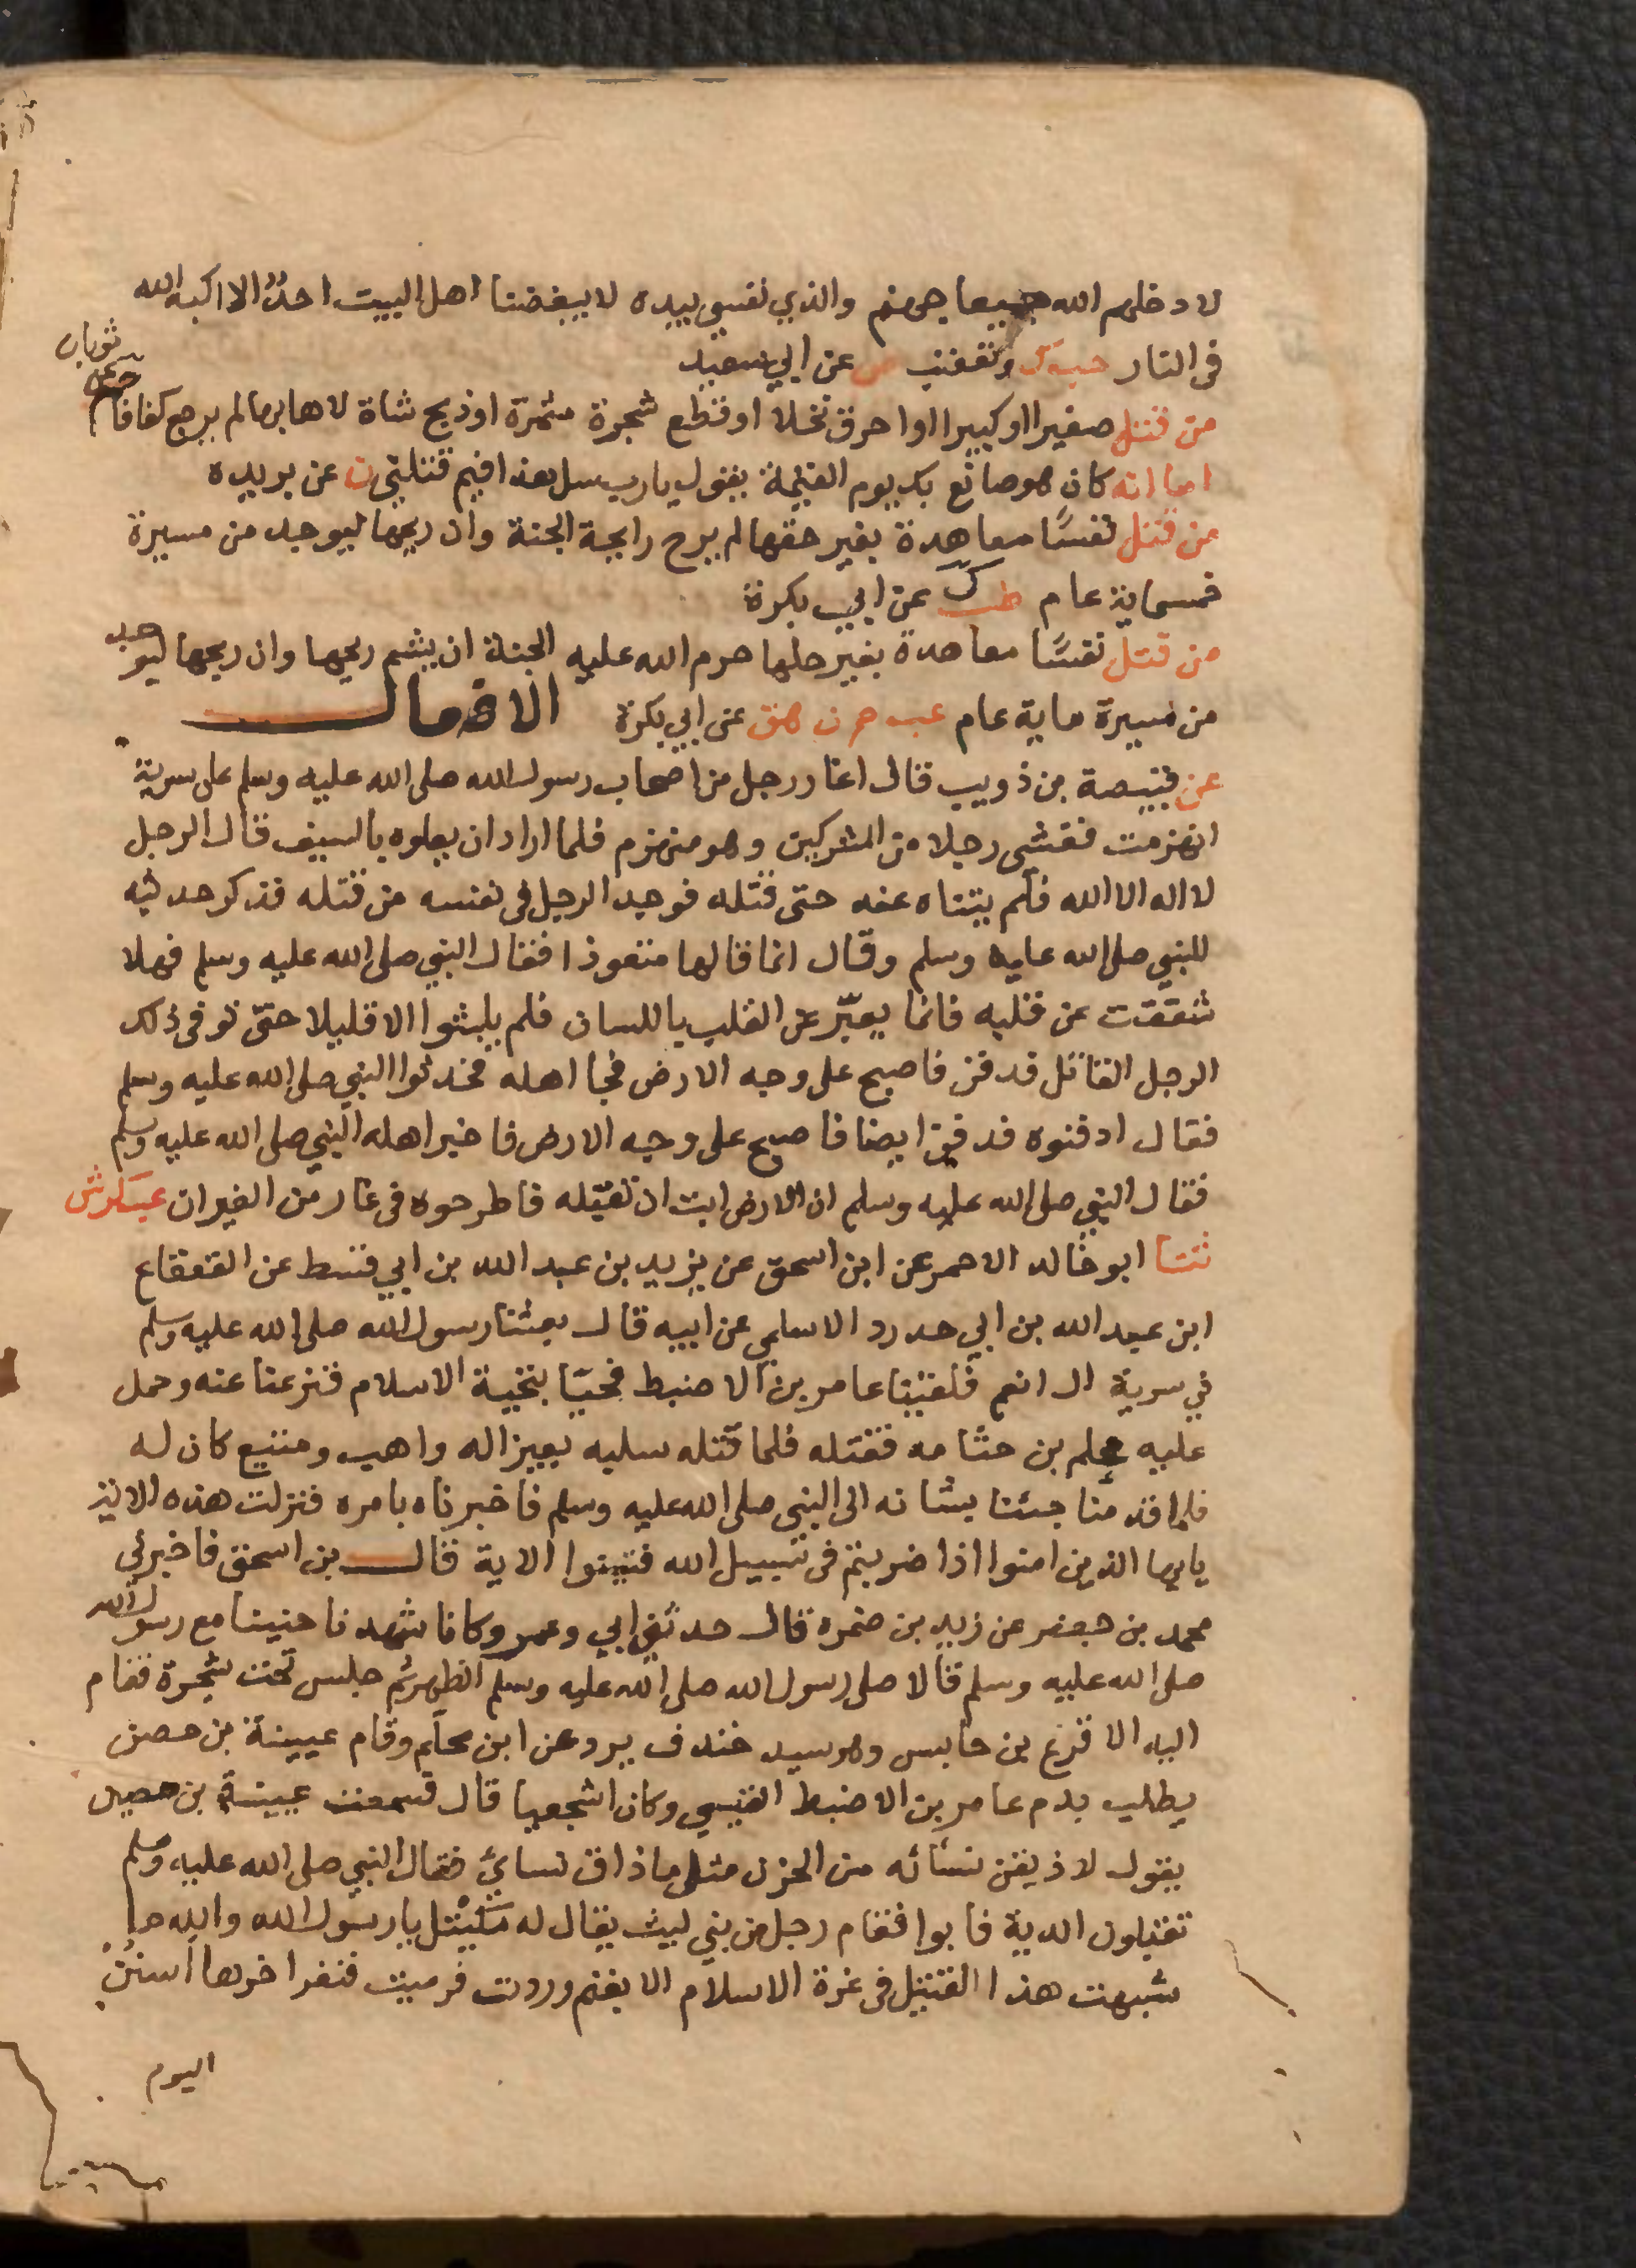 لادخلهم الله جميعا جهنم والذي نفسي بيده لا يبغضنا اهل البيت احدٌ الا اكبه الله
فى النار حب ك وتعقب ص عن ابي سعيد
من قتل صغيرا او كبيرا اوا حرق نخلا او قطع شجرة مثمرة او ذبح شاة لاهابها لم يرجع كفافا حم عن ثوبان
اما انه كان هو صانع بك يوم القيمة يقول يارب سل هذا فيم قتلني ن عن بريده
من قتل نفسًا معاهدة بغير حقها لم يرح رايحة الجنة وان ريحها ليوجد من مسيرة
خمسماية عام طب ك عن ابي بكرة
من قتل نفسًا معاهدة بغير حلها حرم الله عليه الجنة ان يشم ريحها وان ريحها ليوجد
من مسيرة ماية عام عب حم ن هق عن ابي بكرة الافعال
عن قبيصة بن ذويب قال اغار رجل من اصحاب رسول الله صلى الله عليه وسلم على سرية
انهزمت فغشى رجلا من المشركين وهو منهزم فلما اراد ان يعلوه بالسيف قال الرجل
لا اله الا الله فلم يتناه عنه حتى قتله فوجد الرجل فى نفسه من قتله فذكر حديثه
للنبي صلى الله عليه وسلم وقال انما قالها متعوذا فقال النبي صلى الله عليه وسلم فهلا
شققت عن قلبه فانما يعبّر عن القلب باللسان فلم يلبثوا الا قليلا حتى توفى ذلك
الرجل القاتل فدفن فاصبح على وجه الارض فجا اهله فحدثوا النبي صلى الله عليه وسلم
فقال ادفنوه فدفن ايضا فاصبح على وجه الارض فاخبر اهله النبي صلى الله عليه وسلم
فقال النبي صلى الله عليه وسلم ان الارض ابت ان تقبله فاطرحوه فى غار من الغيران عب كر ش
ثنا ابو خالد الاحمر عن ابن اسحق عن يزيد بن عبد الله بن ابي قسط عن القعقاع
ابن عبد الله بن ابي حدرد الاسلمي عن ابيه قال بعثنا رسول الله صلى الله عليه وسلم
في سرية الى اضم فلقينا عامر بن الاضبط فحيّا بتحية الاسلام فنزعنا عنه وحمل
عليه محلم بن جثامه فقتله فلما قتله سلبه بعيرا له واهب ومتيع كان له
فلما قدمنا جئنا بشانه الى النبي صلى الله عليه وسلم فاخبرناه بامره فنزلت هذه الاية
يايها الذين امنوا اذا ضربتم فى سبيل الله فتبينوا الاية قال بن اسحق فاخبرني
محمد بن جعفر عن زيد بن ضمره قال حدثني ابي وعمر وكانا شهدنا حنينا مع رسول الله
صلى الله عليه وسلم قالا صلى رسول الله صلى الله عليه وسلم الظهر ثم جلس تحت شجرة فقام
اليه الاقرع بن حابس وهو سيد خندف يرد عن ابن محلم وقام عيينة بن حصن
يطلب بدم عامر بن الاضبط القيسي وكان اشجعيا قال فسمعت عيينة بن حصن
يقول لاذيقن نسائه من الحزن مثل ما ذاق نسائي فقال النبي صلى الله عليه وسلم
تقبلون الدية فابوا فقام رجل من بني ليث يقال له مكيتل يا رسول الله والله ما
شبهت هذا القتيل فى غرة الاسلام الا بغنم وردت فرميت فنفر اخرها اسنن
اليوم